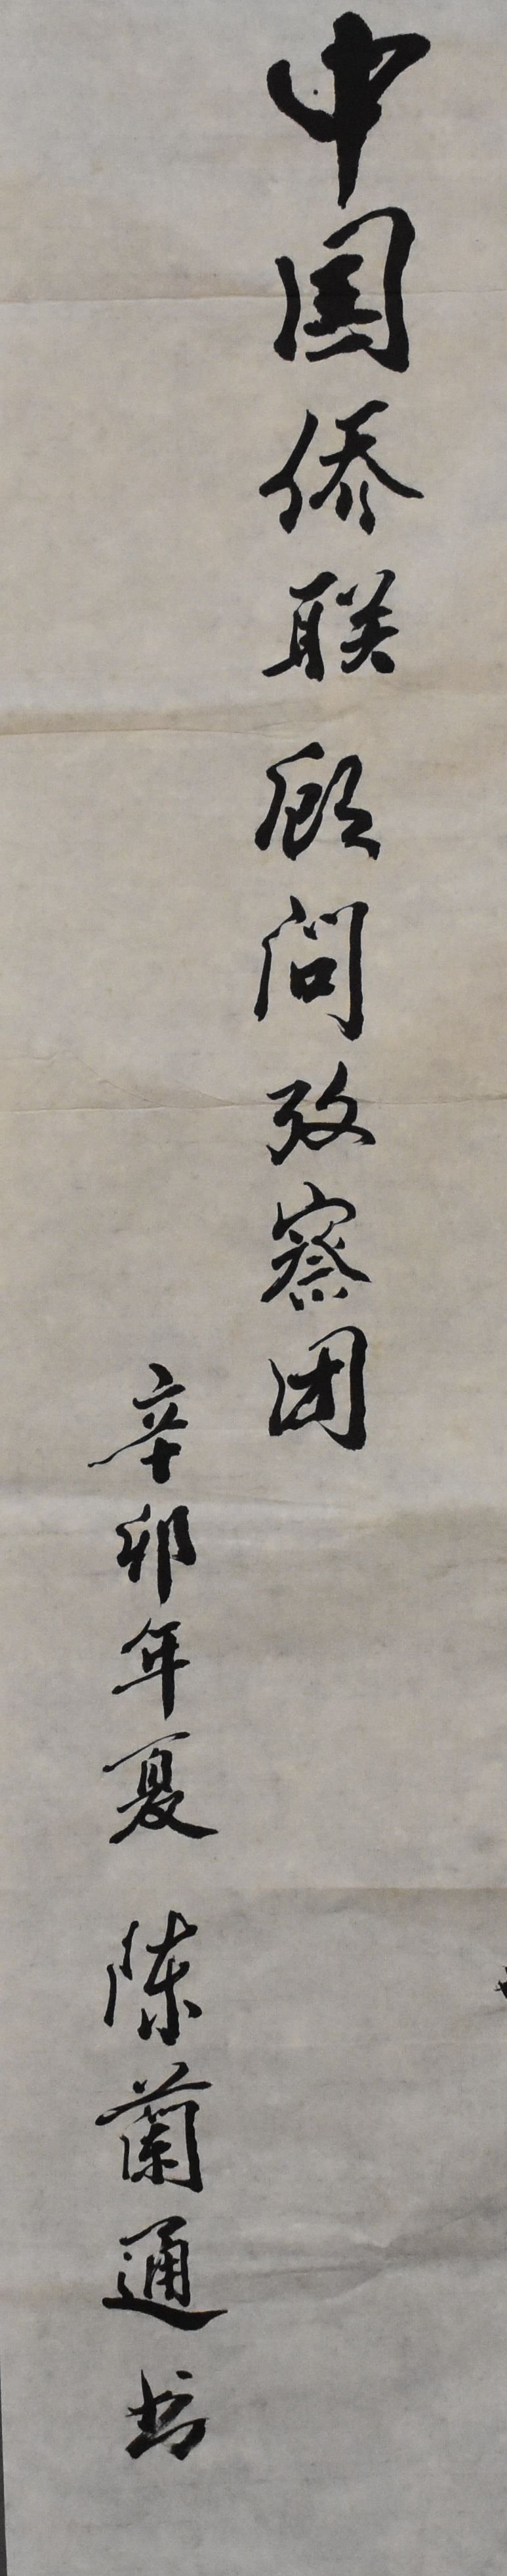 中国侨联顾问攷察团
辛卯年夏 陈蘭通书